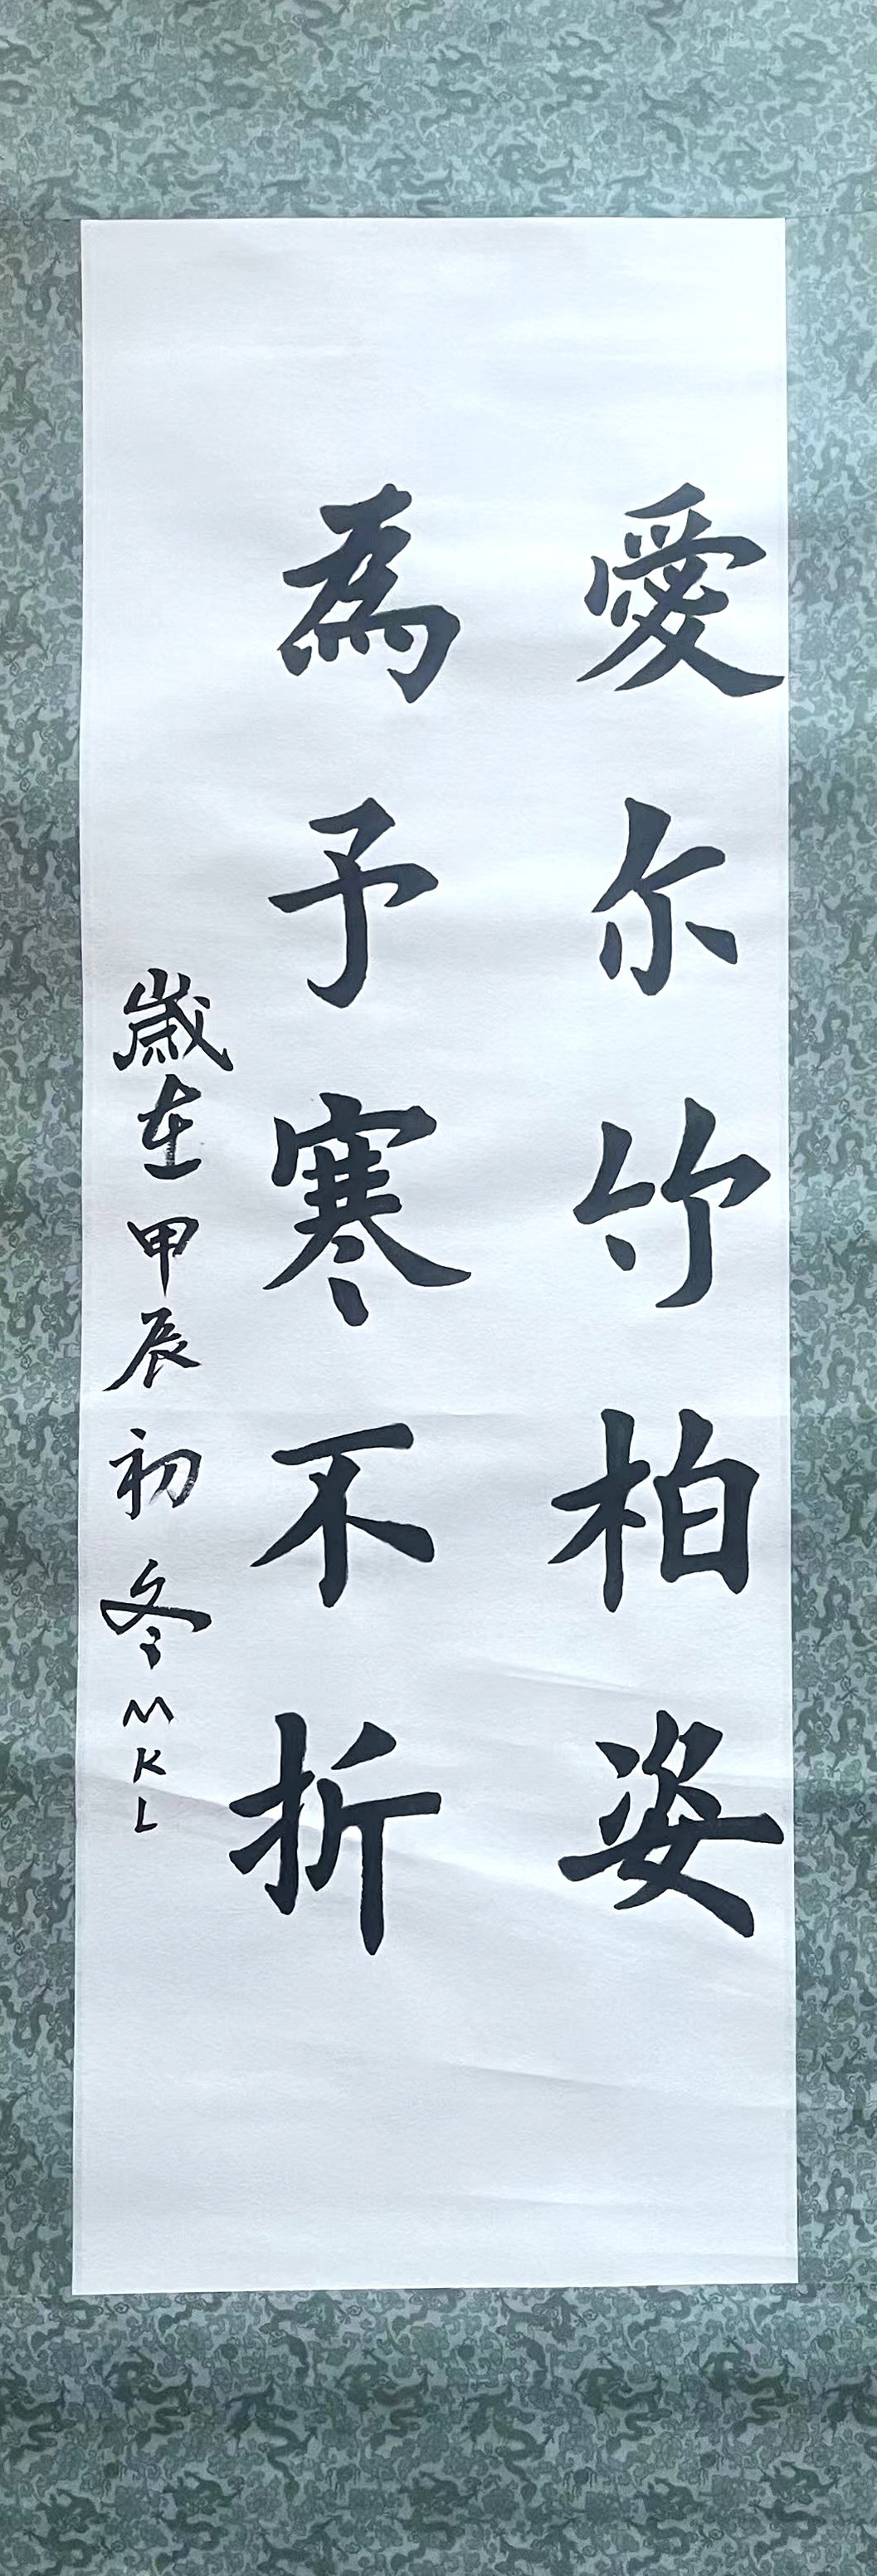 愛尔竹柏姿
為予寒不折
歲在甲辰初冬MKL